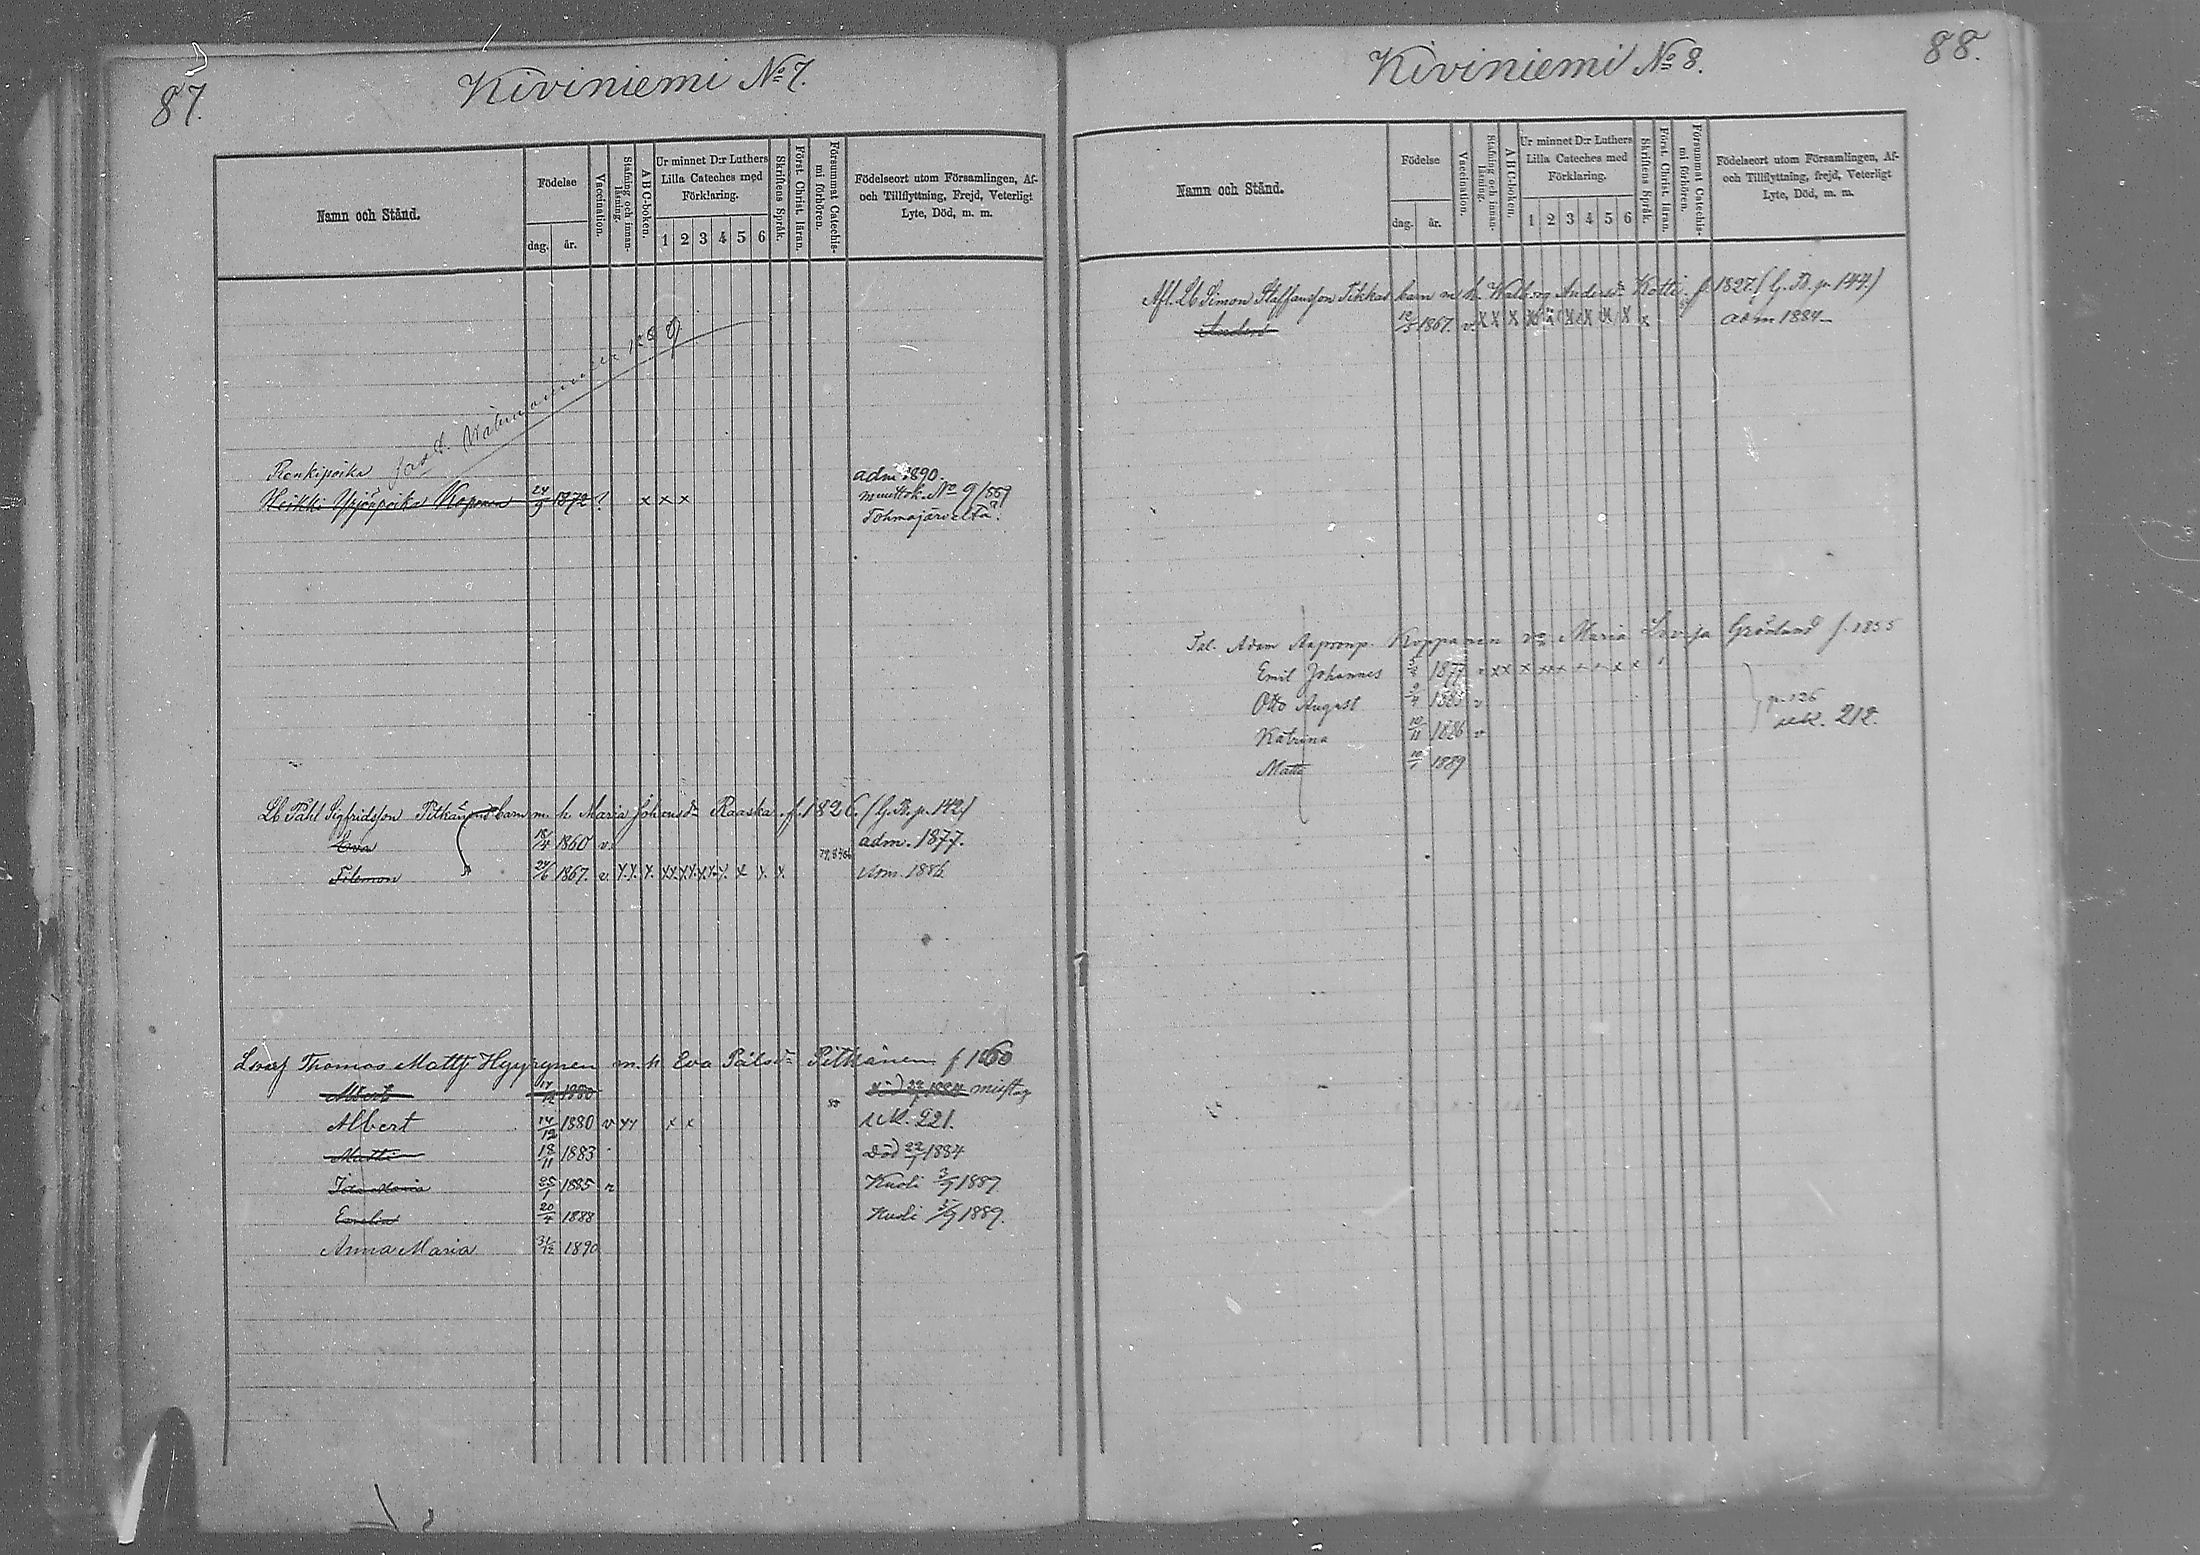 87.
Kiviniemi No 7.
Namn och Stånd.
Födelse
dag.
år.
Vaccination.
Stafning och innan-
läsning.
A B C-boken.
Ur minnet D:r Luthers
Lilla Cateches med
Förklaring.
1 2 3 4 5 6
Skriftens Språk.
Först. Christ. läran.
Försummat Catechis-
mi förhören.
Födelseort utom Församlingen, Af-
och Tillflyttning, Frejd, Veterligt
Lyte, Död, m. m.
Renkipoika
adm 1890.
Heikki Yrjönpoika Koponen 24/9 1872 ? x x x muuttok. No 9/889
Tohmajärveltä.
Lb Påhl Sigfridsson Pitkänens barn m. h. Maria Johansdr Raaska f. 1826. (G. B. p. 142)
Eva 18/4 1860 v. adm. 1877.
Filemon 24/6 1867. v.
Thomas Matts Hyyrynen m. h Eva Pålsdr Pitkänen f 1860
Albert 14/12 1880 Död 22/7 1884
Albert 14/12 1880 v x x uk. 221.
Matti 18/11 1883 Död 22/7 1884
Ida Maria 25/1 1885 Kuoli 3/9 1889
Emelia 20/4 1888 Kuoli 5/9 1889.
Anna Maria 31/12 1890
88.
Kiviniemi No 8.
Namn och Stånd.
Födelse
dag.
år.
Vaccination.
Stafning och innan-
läsning.
A B C-boken.
Ur minnet D:r Luthers
Lilla Cateches med
Förklaring.
1 2 3 4 5 6
Skriftens Språk.
Först. Christ. läran.
Försummat Catechis-
mi förhören.
Födelseort utom Församlingen, Af-
och Tillflyttning, frejd, Veterligt
Lyte, Död, m. m.
Afl. Lb Simon Staffansson Tikkas barn m. h. Walborg Andersdr Kotti f. 1827. (G. B. p. 144.)
1867. v. adm 1884
Tal. Adam Aaproonp. Koppanen vo Maria Lovisa Grönlund f. 1855
Emil Johannes 1877
Otto August 1883 v
Katrina 10/11 1886 v
Matti 1889
p. 126
uk. 212.